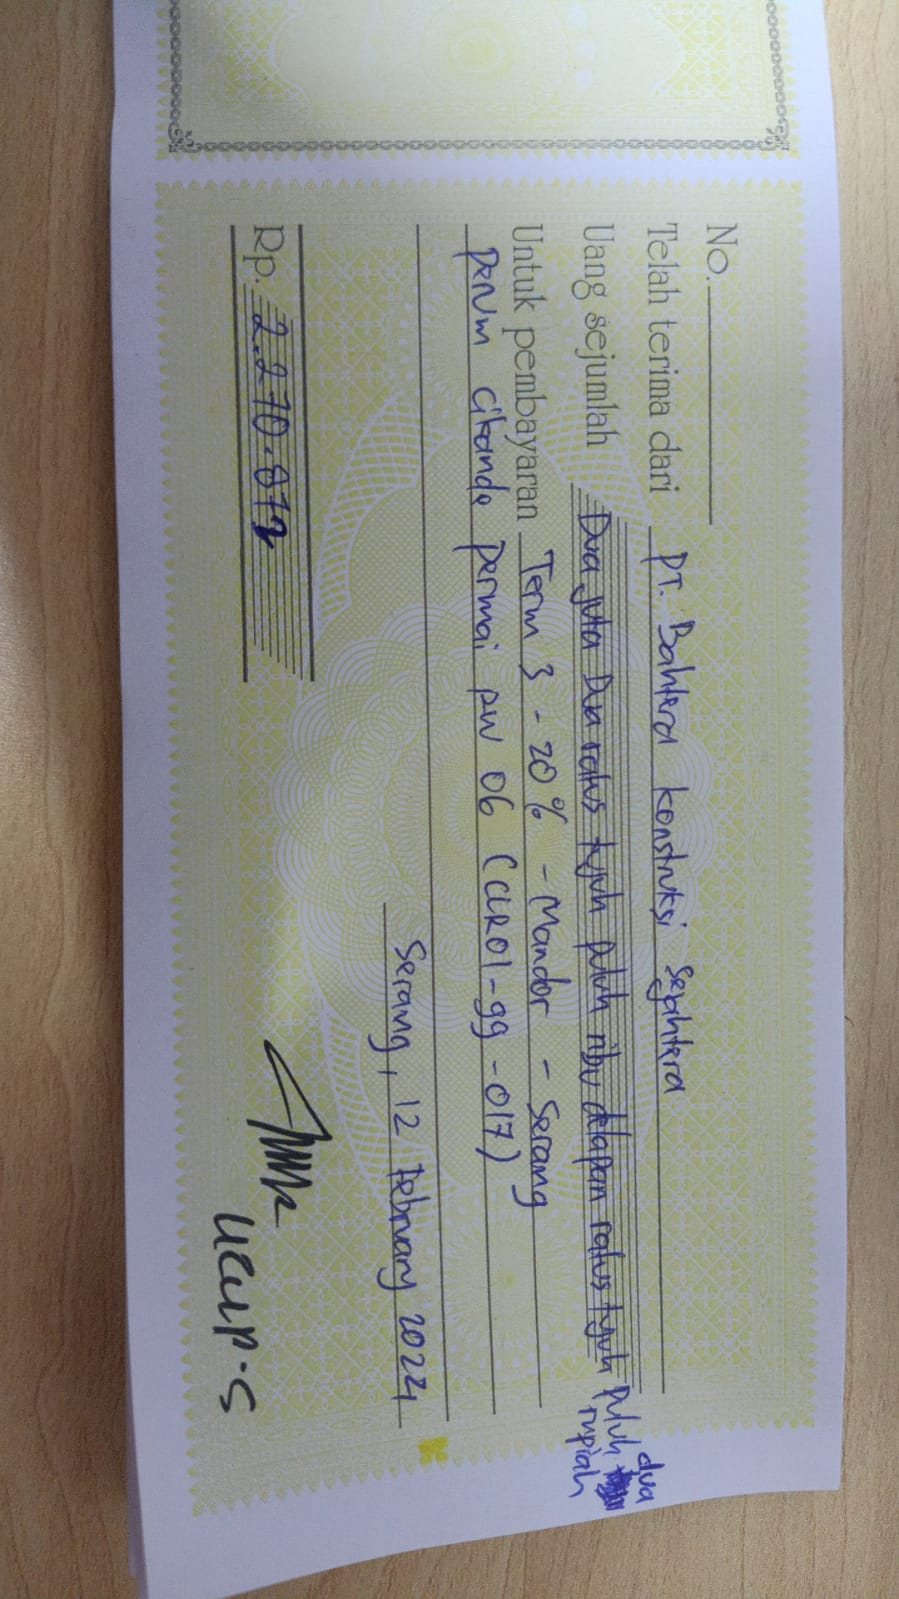 No.
Telah terima dari PT. Bahtera konstruksi sejahtera
Uang sejumlah Dua juta Dua ratus tujuh puluh ribu delapan ratus tujuh puluh dua rupiah
Untuk pembayaran Term 3 - 20% - Mandor - Serang
perum cikande permai pw 06 (CLR01-gg-017)
Serang, 12 February 2024
Rp. 2.270.872
Ucup.S